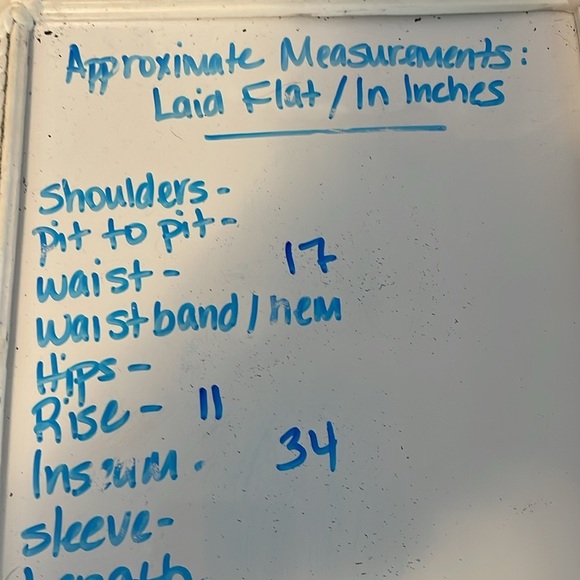 Approximate Measurements:
Laid Flat / In Inches
Shoulders -
pit to pit -
waist - 17
waistband / hem
Hips -
Rise - 11
Inseam. 34
sleeve -
Length